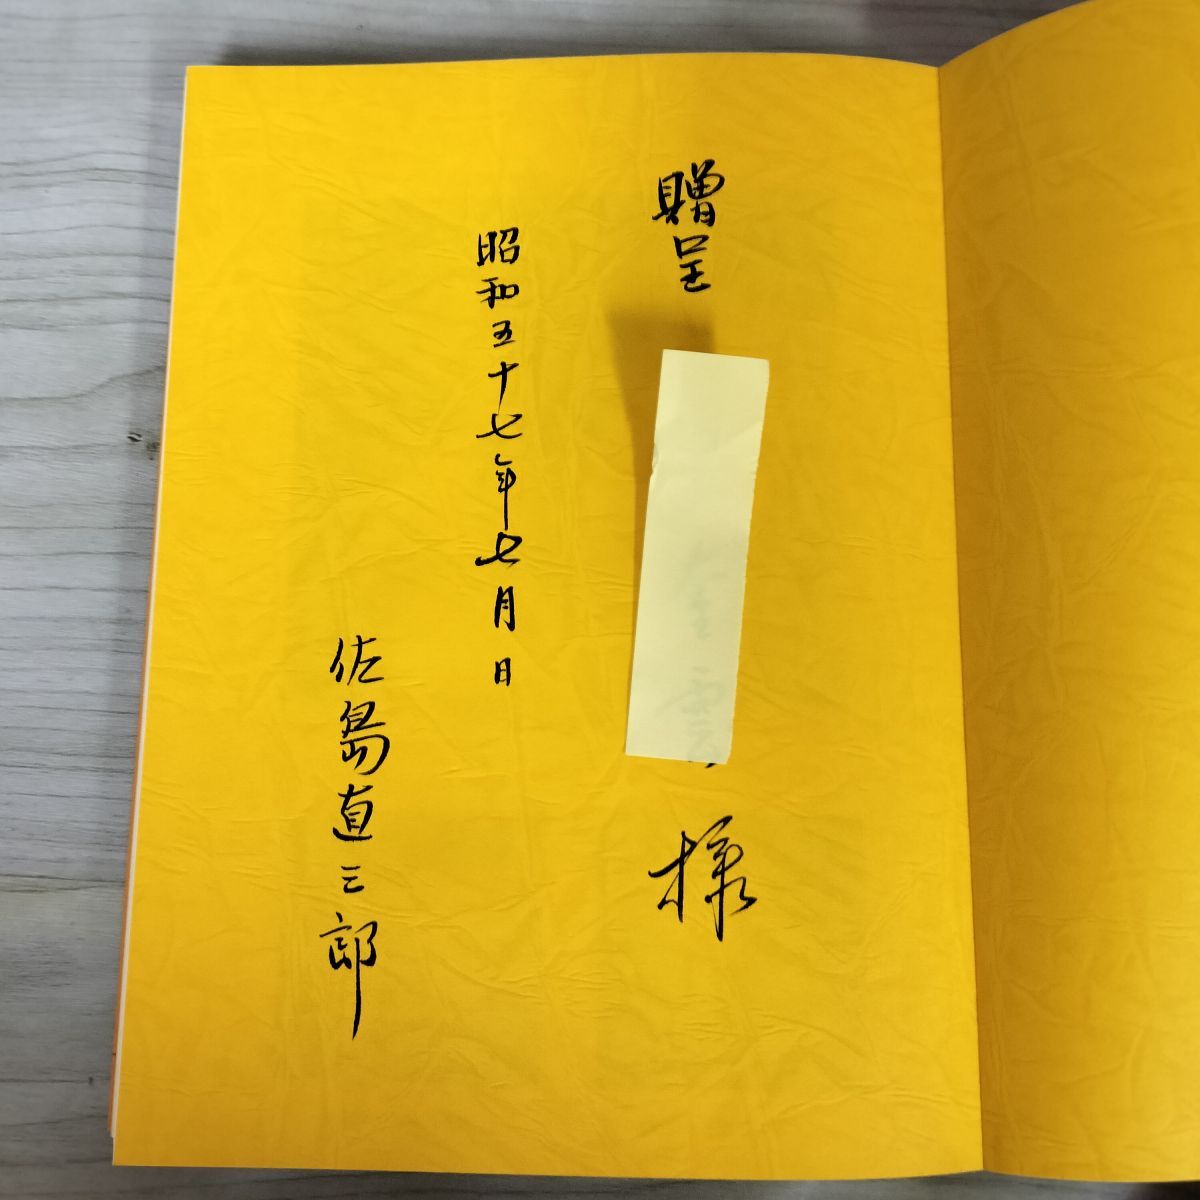 贈呈
様
昭和五十七年七月 日
佐島直三郎